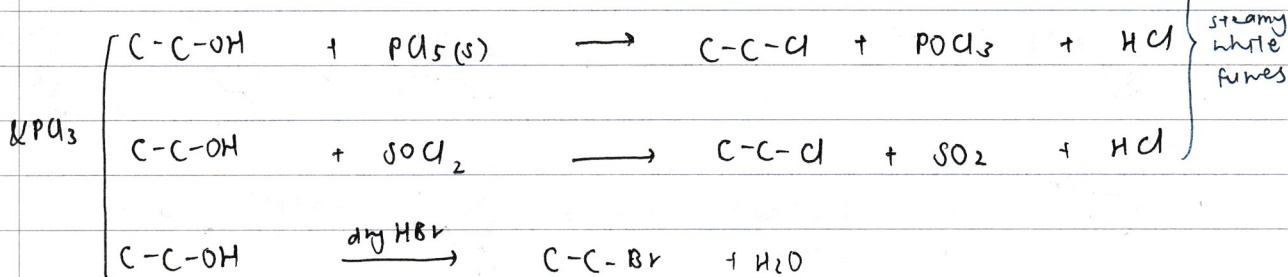 C-C-OH + PCl5(s) → C-C-Cl + POCl3 + HCl } steamy
white
fumes
&PCl3
C-C-OH + SOCl2 → C-C-Cl + SO2 + HCl
C-C-OH dry HBr → C-C-Br + H2O